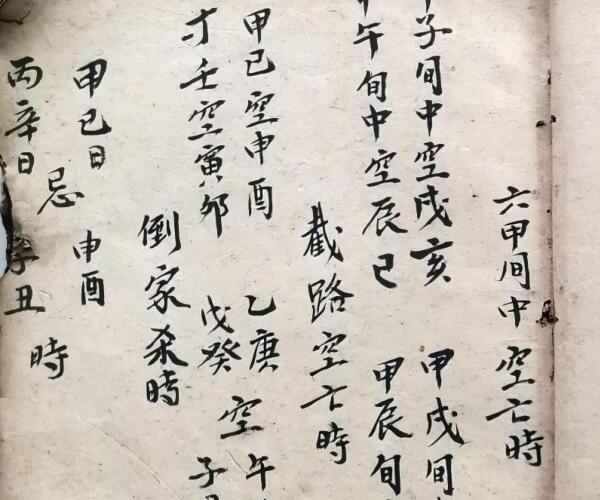 六甲间中空亡時
子旬中空戌亥 甲戌旬
午旬中空辰巳 甲辰旬
截路空亡時
甲己空申酉 乙庚 空 午
壬空寅卯 戊癸 子
倒家杀時
甲己日 忌 申酉 時
丙辛日 丑